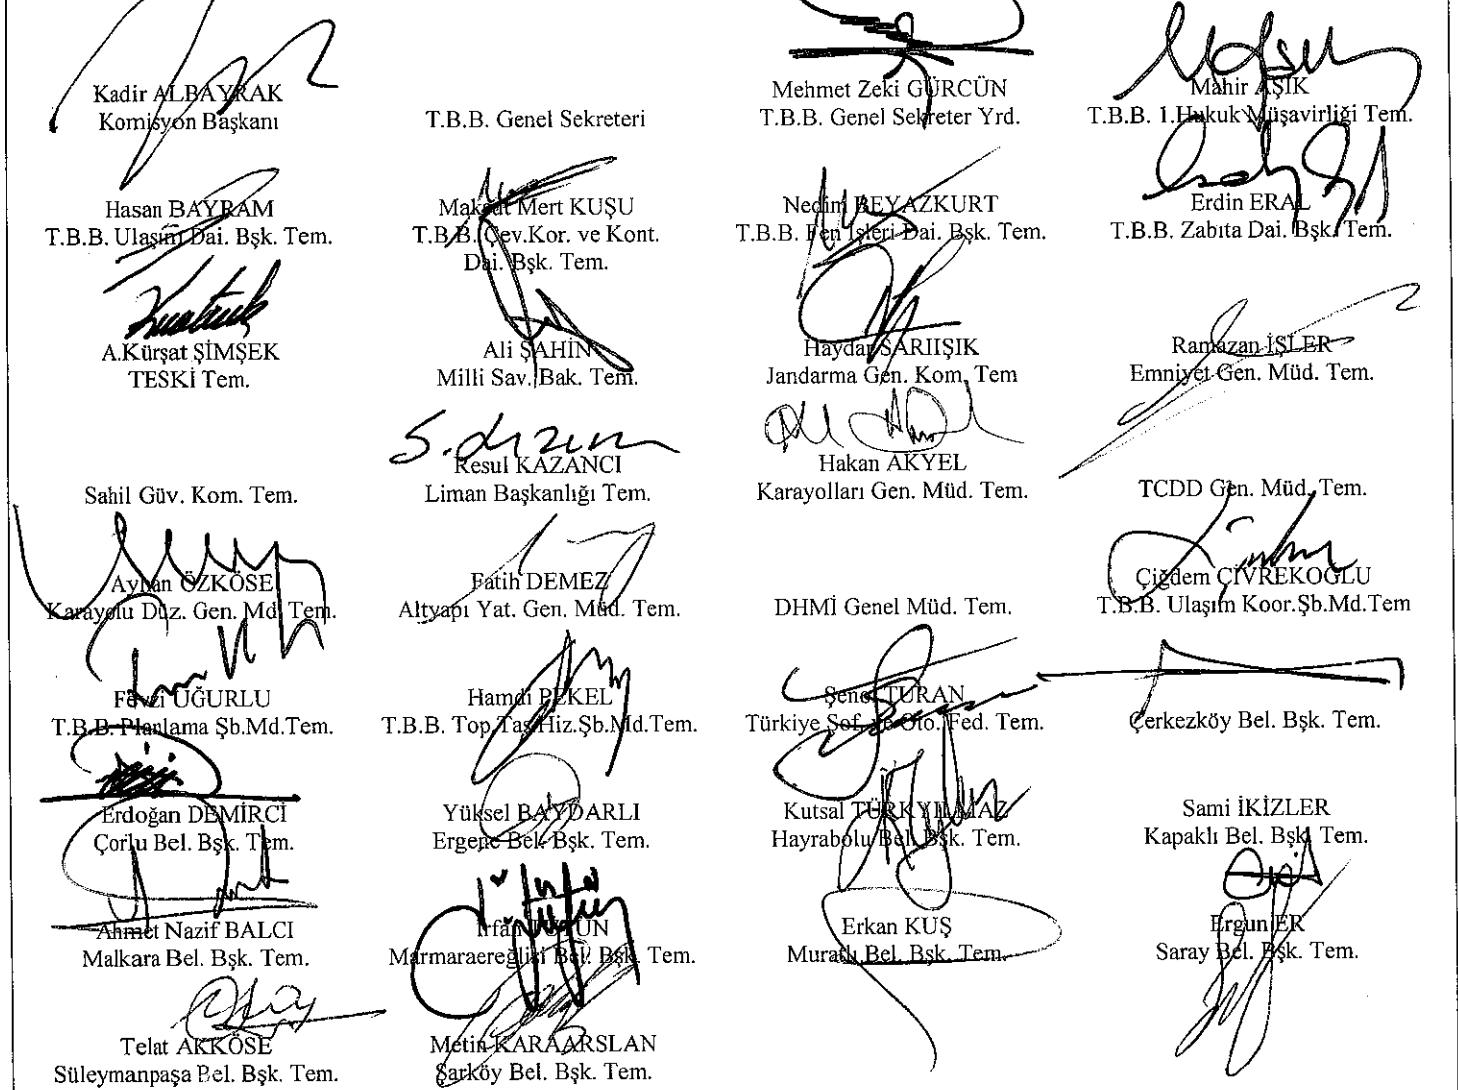 Kadir ALBAYRAK
Komisyon Başkanı
T.B.B. Genel Sekreteri
Mehmet Zeki GÜRCÜN
T.B.B. Genel Sekreter Yrd.
Mahir AŞIK
T.B.B. 1.Hukuk Müşavirliği Tem.
Hasan BAYRAM
T.B.B. Ulaşım Dai. Bşk. Tem.
Maksut Mert KUŞU
T.B.B. Çev.Kor. ve Kont.
Dai. Bşk. Tem.
Nedim BEYAZKURT
T.B.B. Fen İşleri Dai. Bşk. Tem.
Erdin ERAL
T.B.B. Zabıta Dai. Bşk. Tem.
A.Kürşat ŞİMŞEK
TESKİ Tem.
Ali ŞAHİN
Milli Sav. Bak. Tem.
Haydar SARIIŞIK
Jandarma Gen. Kom. Tem
Ramazan İŞLER
Emniyet Gen. Müd. Tem.
Sahil Güv. Kom. Tem.
Resul KAZANCI
Liman Başkanlığı Tem.
Hakan AKYEL
Karayolları Gen. Müd. Tem.
TCDD Gen. Müd. Tem.
Ayhan ÖZKÖSE
Karayolu Düz. Gen. Md. Tem.
Fatih DEMEZ
Altyapı Yat. Gen. Müd. Tem.
DHMİ Genel Müd. Tem.
Çiğdem ÇİVREKOĞLU
T.B.B. Ulaşım Koor.Şb.Md.Tem
Fevzi UĞURLU
T.B.B. Planlama Şb.Md.Tem.
Hamdi PEKEL
T.B.B. Top.Taş.Hiz.Şb.Md.Tem.
Şenol TURAN
Türkiye Şof. ve Oto. Fed. Tem.
Çerkezköy Bel. Bşk. Tem.
Erdoğan DEMİRCİ
Çorlu Bel. Bşk. Tem.
Yüksel BAYDARLI
Ergene Bel. Bşk. Tem.
Kutsal TÜRKYILMAZ
Hayrabolu Bel. Bşk. Tem.
Sami İKİZLER
Kapaklı Bel. Bşk. Tem.
Ahmet Nazif BALCI
Malkara Bel. Bşk. Tem.
İrfan TUTUN
Marmaraereğlisi Bel. Bşk. Tem.
Erkan KUŞ
Muratlı Bel. Bşk. Tem.
Ergun ER
Saray Bel. Bşk. Tem.
Telat AKKÖSE
Süleymanpaşa Bel. Bşk. Tem.
Metin KARAARSLAN
Şarköy Bel. Bşk. Tem.